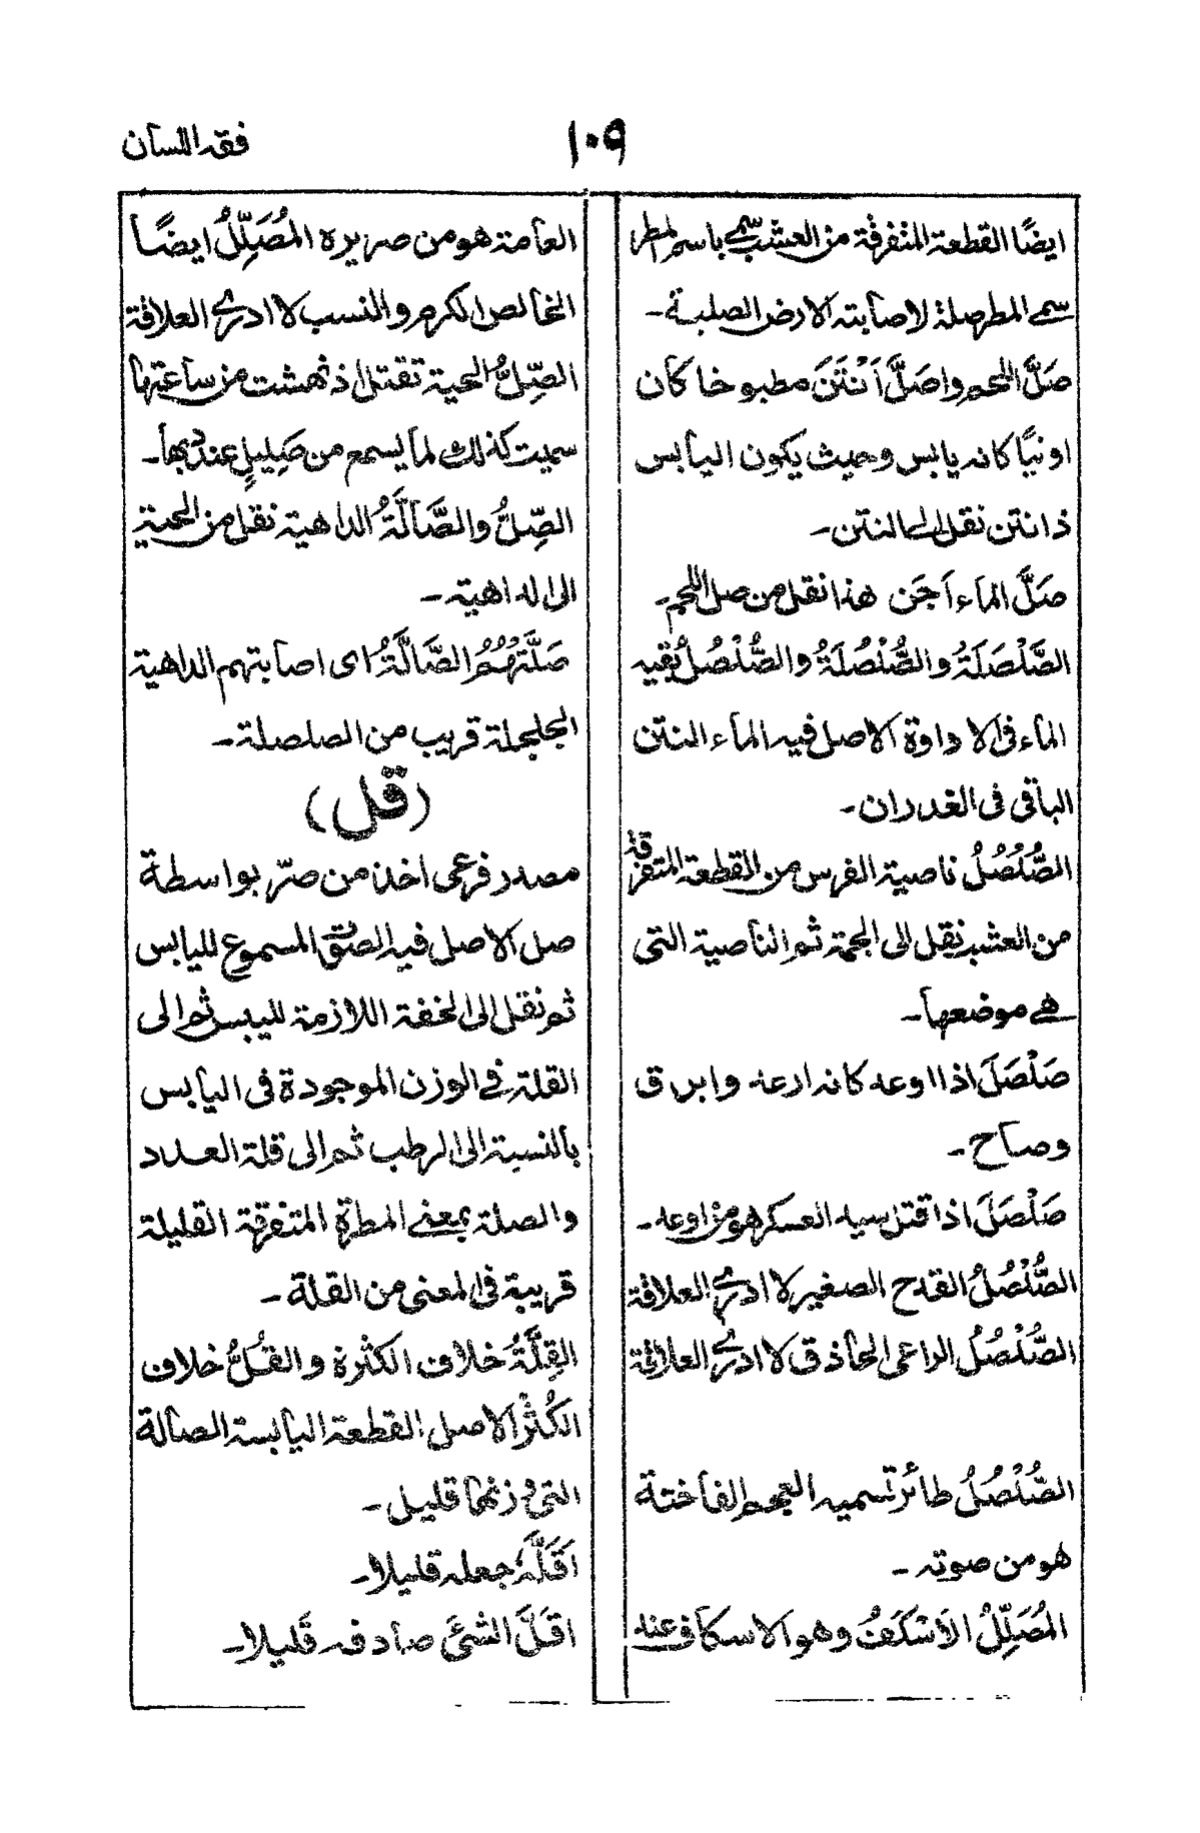 فقه اللسان
١٠٩
ايضًا القطعة المتفرقة من العشب سمى باسم المطر
سمى المطر صلة لاصابته الارض الصلبة۔
صَلَّ اللحم واصَلَّ اَنْتَنَ مطبوخا كان
اونيًا كانه يابس وحيث يكون اليابس
ذا نتن نقل الى النتن۔
صَلَّ الماء اَجَن هذا نقل من صل اللحم۔
الصَّلْصَلَةُ والصُّلْصُلَةُ والصُّلْصُلُ بقيه
الماء فى الاداوة الاصل فيه الماء النتن
الباقى فى الغدران۔
الصُّلْصُلُ ناصية الفرس من القطعة المتفرقة
من العشب نقل الى الجمة ثم الناصية التى
هى موضعها۔
صَلْصَلَ اذا اوعد كانه ارعد وابرق
وصاح۔
صَلْصَلَ اذا قتل سيد العسكر هو من اوعد۔
الصُّلْصُلُ القدح الصغير لا ادرى العلاقة
الصُّلْصُلُ الراعى الحاذق لا ادرى العلاقة
الصُّلْصُلُ طائر تسميه العجم الفاختة
هو من صوته۔
المُصَلِّلُ الاَسْكَفُ وهو الاسكاف عند
العامة هو من صريره المُصَلِّلُ ايضًا
الخالص الكرم والنسب لا ادرى العلاقة
الصِّلُّ الحية تقتل اذ نهشت من ساعتها
سميت كذلك لما يسمع من صَلِيلٍ عند دبها۔
الصِّلُّ والصَّالَّةُ الداهية نقل من الحية
الى الداهية۔
صَلَّتْهُمُ الصَّالَّةُ اى اصابتهم الداهية
الجلجلة قريب من الصلصلة۔
(قل)
مصدر فرعى اخذ من صرّ بواسطة
صل الاصل فيه الصوت المسموع لليابس
ثم نقل الى الخفة اللازمة لليبس ثم الى
القلة فى الوزن الموجودة فى اليابس
بالنسبة الى الرطب ثم الى قلة العدد
والصلة بمعنى المطرة المتفرقة القليلة
قريبة فى المعنى من القلة۔
القِلَّةُ خلاف الكثرة والقُلُّ خلاف
الكُثْر الاصل القطعة اليابسة الصالة
التى وزنها قليل۔
اَقَلَّهٗ جعله قليلا۔
اقَلَّ الشئَ صادفه قَليلا۔